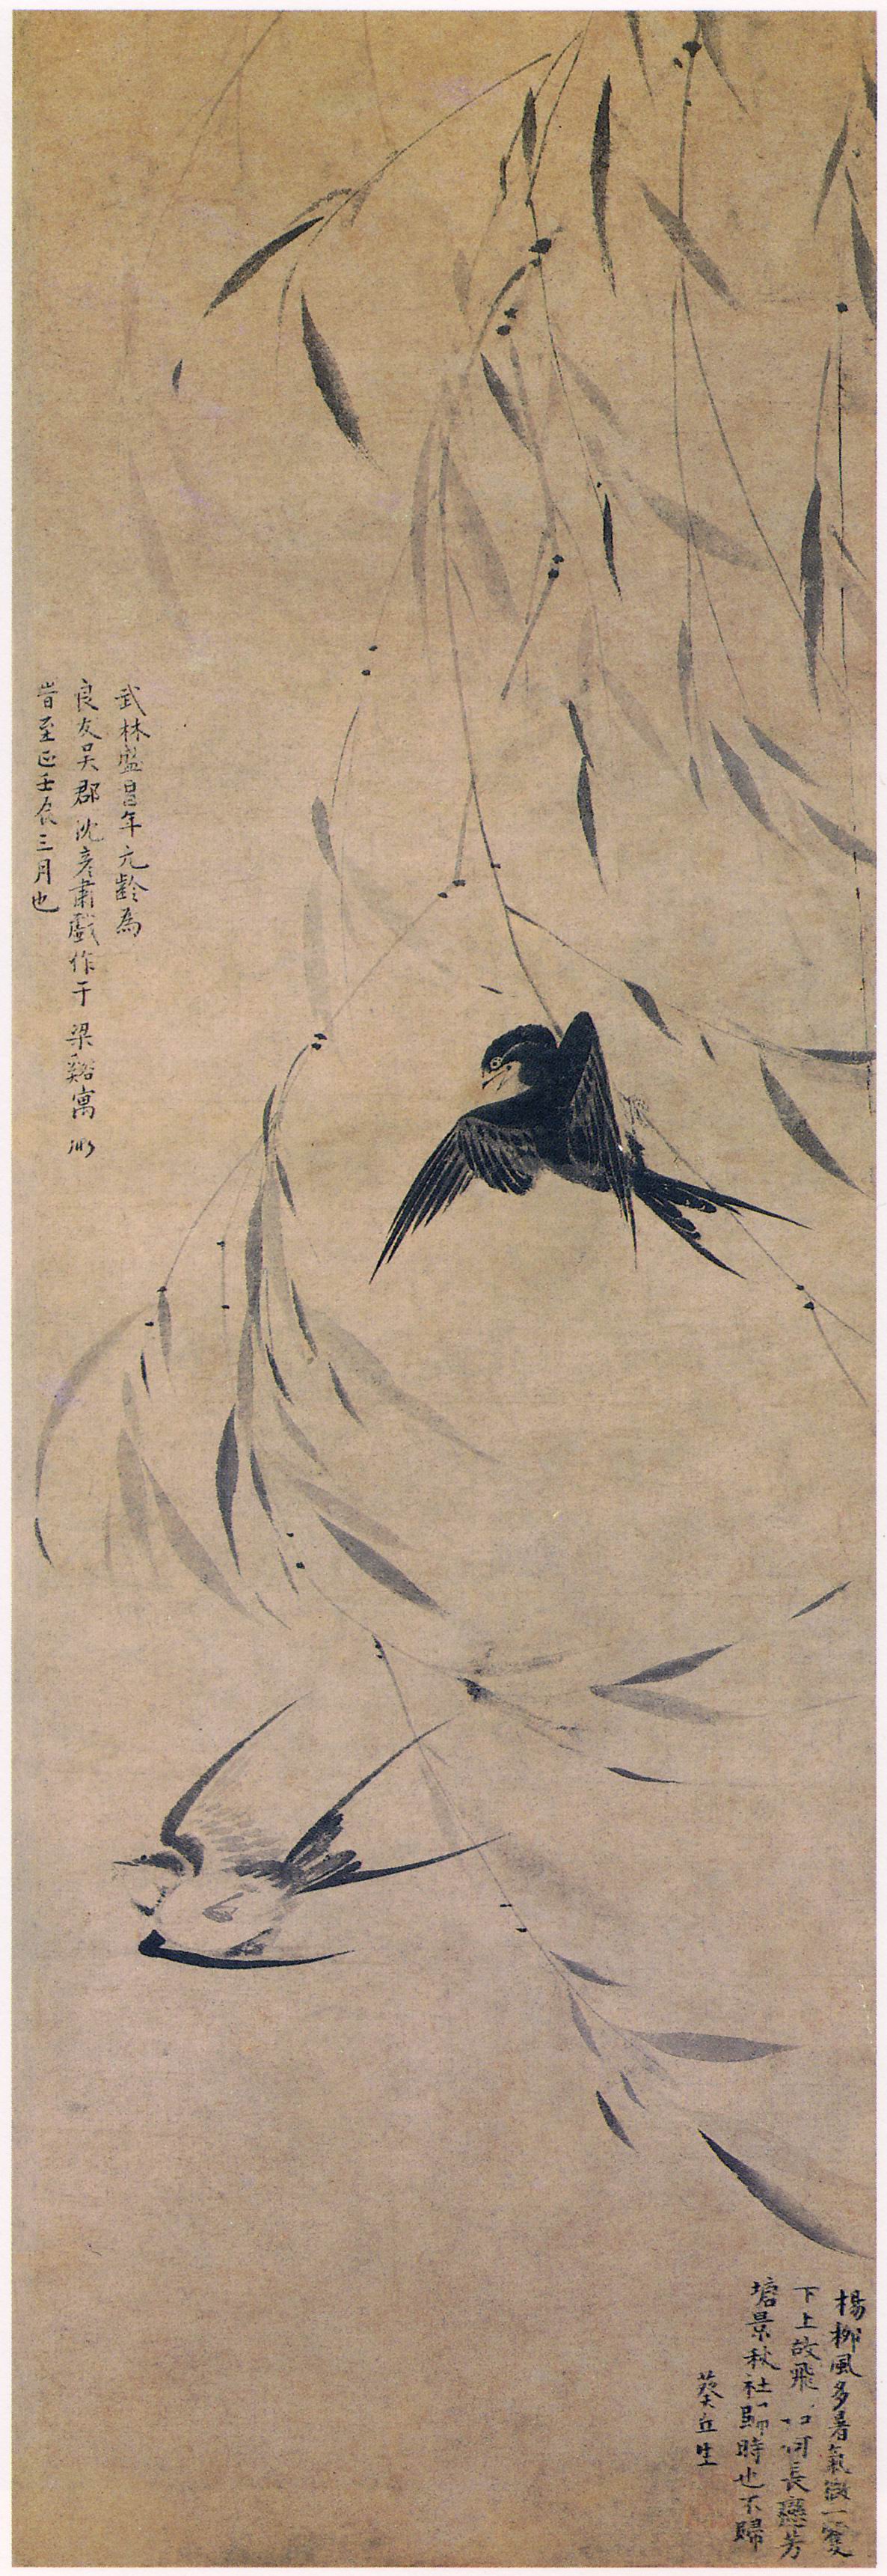 武林盛昌年元齡為
良友吳郡沈彥肅戲作于梁谿寓所
旹至正壬辰三月也
楊柳風多暑氣微一雙
下上故飛〻如何長戀芳
塘景秋社歸時也不歸
葵丘生